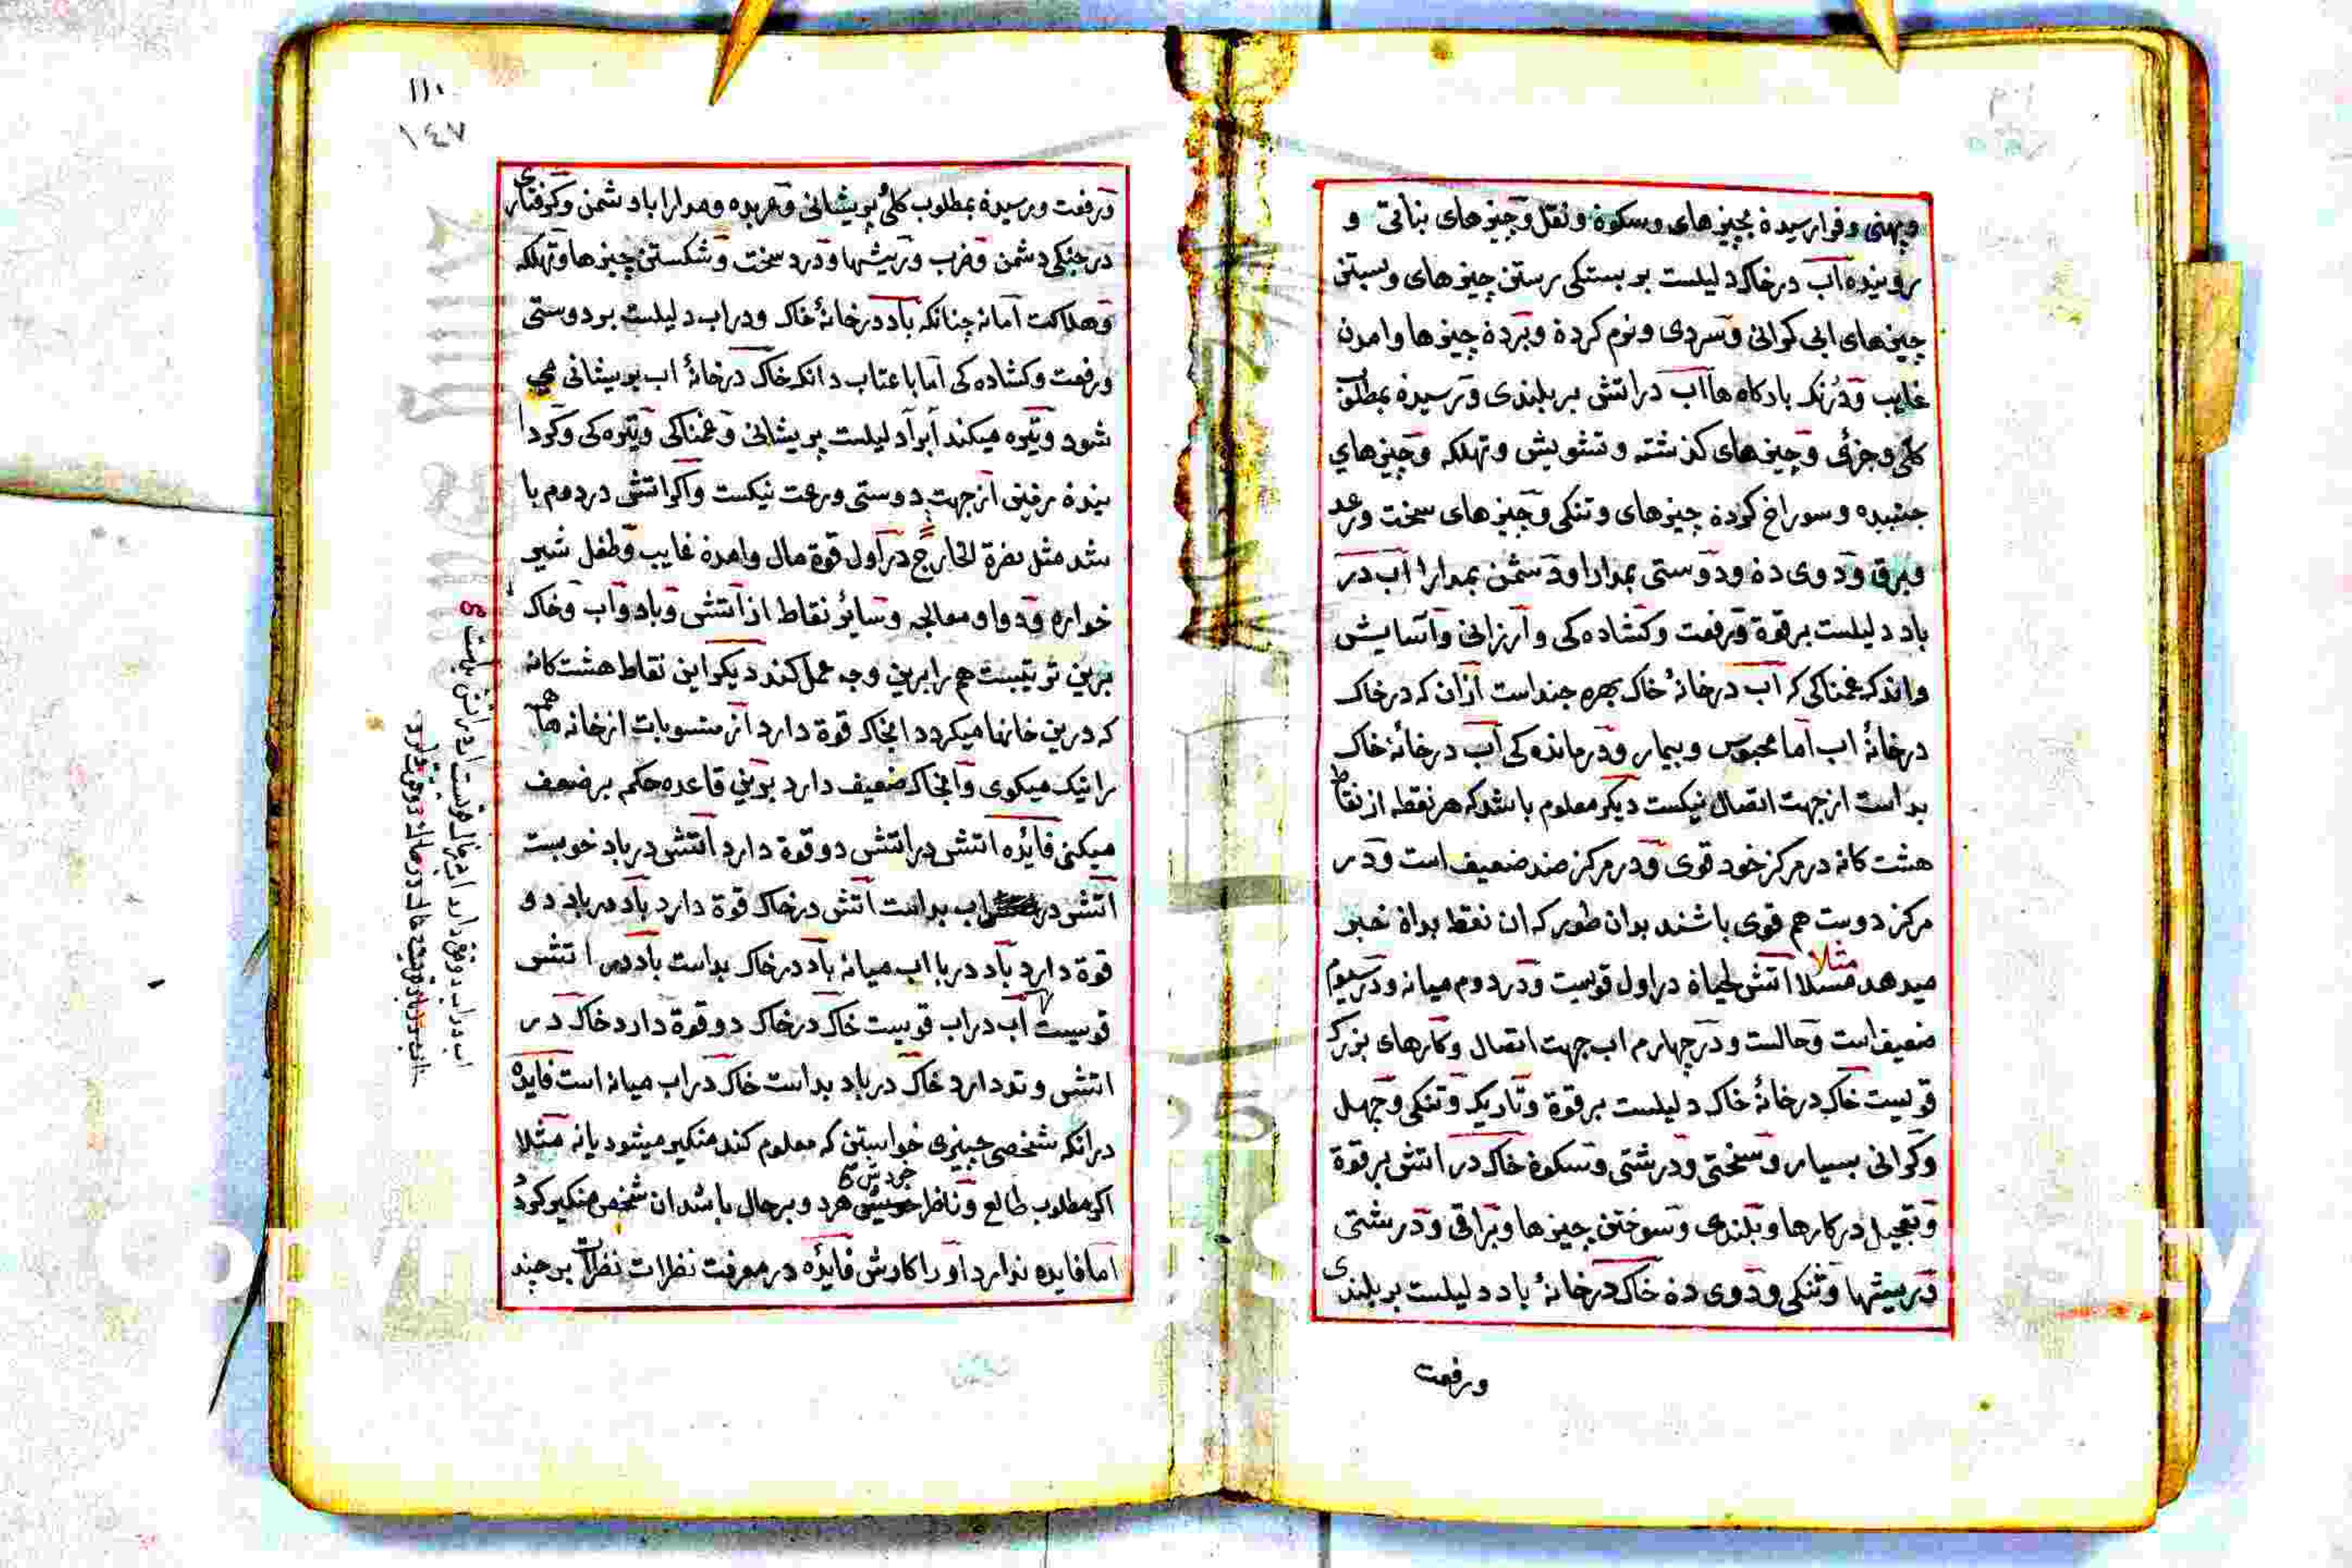 وپهنی وفرارسیدة بچیزهای وسکوة ونقل وچیزهای بناتی و
روینیده آب درخاک دلیلست بر بستکی رستن چیزهای وبستن
چیزهای ابی کرانی وسردی ونوم کردة وبردة چیزها وامدن
غایب ودرنک بادکاه ها آب دراتش بر بلندی ورسیدة بمطلوب
کلی وجزئی وچیزهای کذشته وتشویش وتهلکه وچیزهای
جنبیده وسوراخ کردة چیزهای وتنکی وچیزهای سخت ورعد
وبرق ودوی دة ودوستی بمدارا ودشمن بمدارا آب در
باد دلیلست برقوة ورفعت وکشاده کی وآرزانی وآسایش
واندکه غمناکی که آب درخانۀ خاک بهره جنداست ازان که درخاک
درخانۀ اب اما محبوس وبیمار ودرمانده کی آب درخانۀ خاک
بداست ازجهت اتصال نیکست دیکر معلوم باشدکه هرنقطه ازنقاط
هشت کانه درمرکزخود قوی ودرمرکز ضد ضعیف است ودر
مرکز دوست هم قوی باشند بدان طور که ان نقط بداة خبر
میدهد مثلا اتش لحیاة دراول قویست ودردوم میانه ودرسیوم
ضعیف است وحالست ودرچهارم اب جهت اتصال وکارهای بزرک
قویست خاک درخانۀ خاک دلیلست برقوة وتاریک وتنکی وجهل
وکرانی بسیار وسختی ودرشتی وسکوة خاک دراتش برقوة
وتعجیل درکارها وبلندی وسوختن چیزها وبراقی ودرشتی
وریشها وتنکی ودوی دة خاک درخانۀ باد دلیلست بر بلندی
ورفعت
١١٠
١٤٧
ورفعت ورسیدة بمطلوب کلی پریشانی وعربده ومدارا باد شمن وکرفتاری
درجنکی دشمن وضرب وریشها ودرد سخت وشکستن چیزها وتهلکه
وهلاکت امانه چنانکه باد درخانۀ خاک ودراب دلیلست بر دوستی
ورفعت وکشاده کی اما باعتاب دانکه خاک درخانۀ اب پریشانی می
شود وتیره میکند آبرا دلیلست پریشانی وغمناکی وتیره کی وکردا
نیدة رفتن ازجهت دوستی ورعت نیکست واکراتش دردوم با
شد مثل نصرة الخارج دراول قوة مال وامدة غایب وطفل شیر
خواره ودوا ومعالجه وسایر نقاط از آتش وباد وآب وخاک
برین ترتیبست هم رابرین وجه عمل کند دیکر این نقاط هشت کانه
که درین خانها میکردد انجاکه قوة دارد از منسوبات ازخانه هاهم
رانیک میکوی وانجاکه ضعیف دارد برین قاعده حکم برضعف
میکنی فائده اتش دراتش دو قوة دارد اتش درباد خوبست
اتش در اب بداست اتش درخاک قوة دارد باد درباد دو
قوة دارد باد دربا اب میانه باد درخاک بداست باد در اتش
قویست آب دراب قویست خاک درخاک دو قوة دارد خاک در
اتش وتو دارد خاک درباد بداست خاک دراب میانه است فایده
درانکه شخصی چیزی خواستن که معلوم کند منکیر میشود یانه مثلا
اکر مطلوب طالع وناظر هرد وبرحال باشد ان شخص منکیر کرد
اما فایده ندارد او را کارش فائده درمعرفت نظرات نظرات بر چند